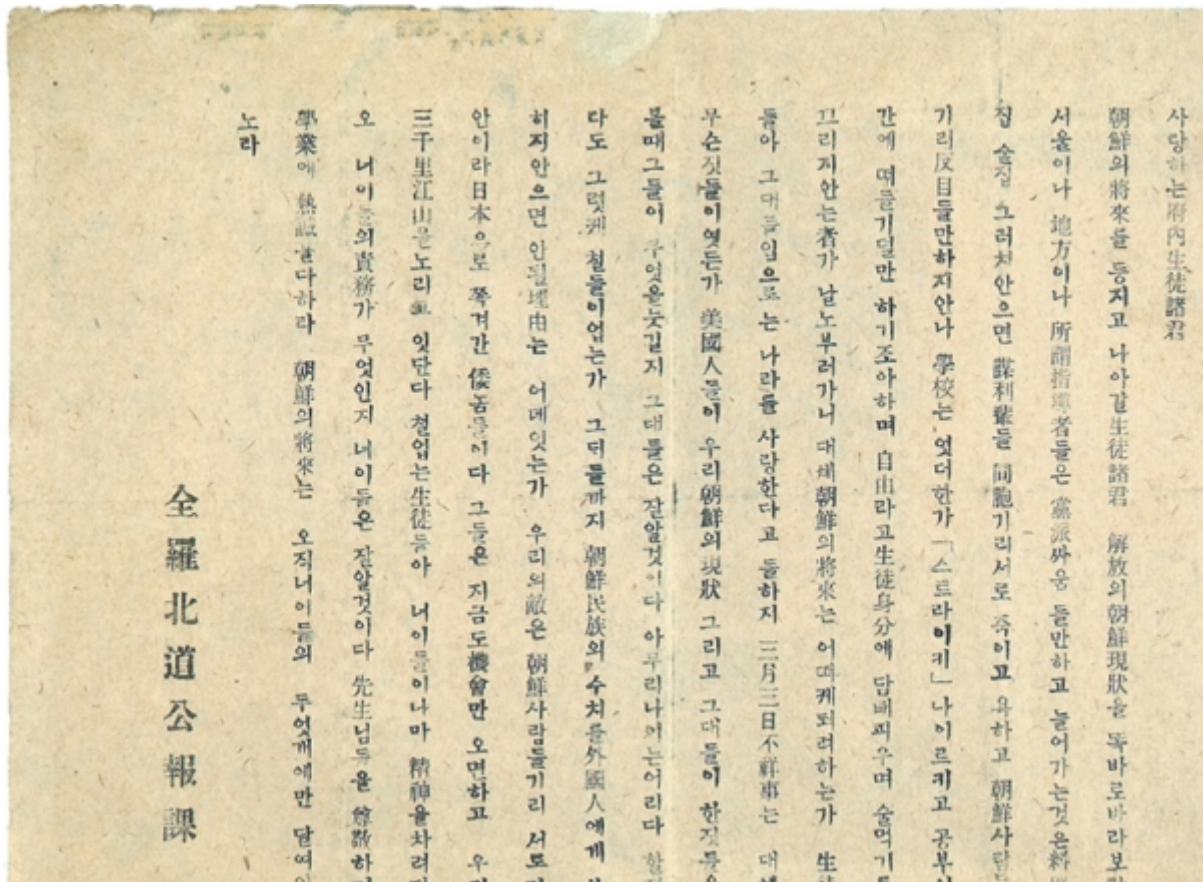 사랑하는府內生徒諸君
朝鮮의將來를 등지고 나아갈生徒諸君 解放의朝鮮現狀을 똑바로바라보라
서울이나 地方이나 所謂指導者들은 黨派싸움 들만하고 늘어가는것은料
집 술집 그러치안으면 謀利輩들 同胞기리서로 죽이고 욕하고 朝鮮사람
기리反目들만하지안나 學校는 엇더한가「스트라이키」나이르키고 공부
간에 떠들기덜만 하기조아하며 自由라고生徒身分에 담배피우며 술먹기를
끄리지안는者가 날노부러가니 대체朝鮮의將來는 어떠케되려하는가 生
들아 그대들입으로는 나라를 사랑한다고 들하지 三月三日不祥事는 대체
무슨짓들이엿든가 美國人들이 우리朝鮮의現狀 그리고 그대들이 한짓들을
볼때그들이 무엇을늣길지 그대들은 잘알것이다 아무리나이는어리다 할
라도 그럿케 철들이업는가 그대들까지 朝鮮民族의 수치를外國人에게
히지안으면 안될理由는 어데잇는가 우리의敵은 朝鮮사람들기리 서로가
안이라日本으로 쫓겨간 倭놈들이다 그들은 지금도機會만 오면하고 우리
三千里江山을노리고 잇단다 철업는生徒들아 너이들이나마 精神을차려
오 너이들의責務가 무엇인지 너이들은 잘알것이다 先生님들을 尊敬하
學業에 熱誠을다하라 朝鮮의將來는 오직너이들의 두엇개에만 달여
노라
全羅北道公報課